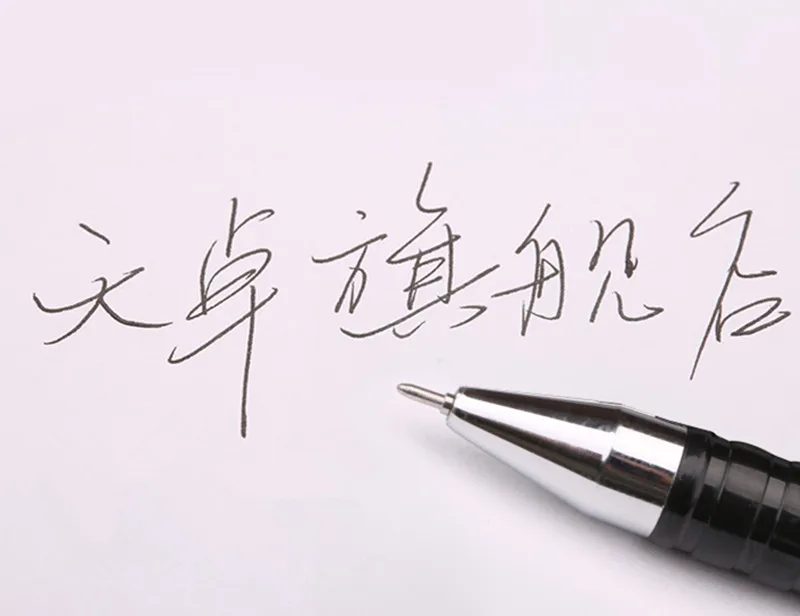 天卓旗舰店